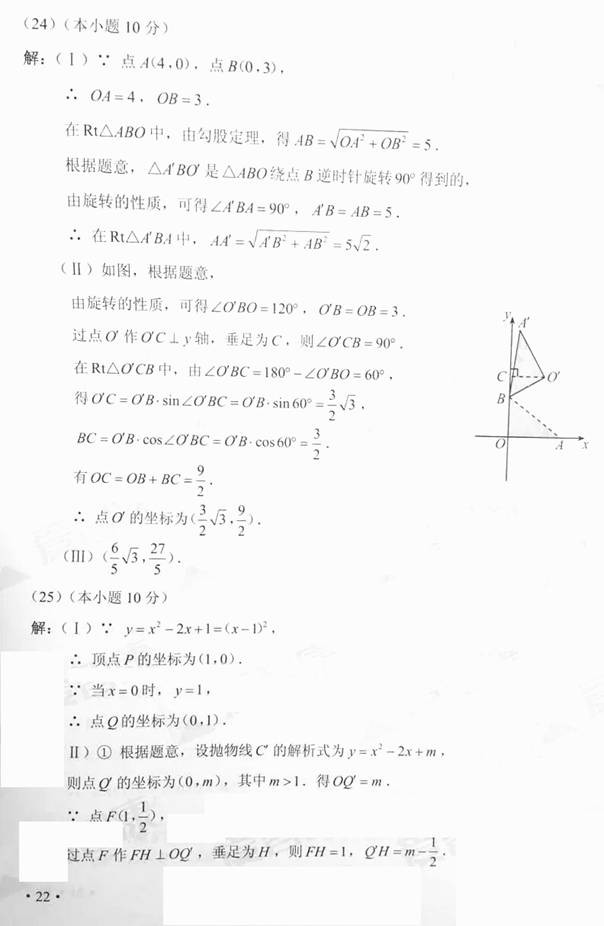 (24)（本小题 10 分）
解：(Ⅰ) ∵ 点 A(4,0)，点 B(0,3)，
∴ OA=4，OB=3．
在 Rt△ABO 中，由勾股定理，得 AB=√(OA²+OB²)=5．
根据题意，△A′BO′ 是 △ABO 绕点 B 逆时针旋转 90° 得到的，
由旋转的性质，可得∠A′BA=90°，A′B=AB=5．
∴ 在 Rt△A′BA 中，AA′=√(A′B²+AB²)=5√2．
(Ⅱ) 如图，根据题意，
由旋转的性质，可得∠O′BO=120°，O′B=OB=3．
过点 O′ 作 O′C⊥y 轴，垂足为 C，则∠O′CB=90°．
在 Rt△O′CB 中，由∠O′BC=180°−∠O′BO=60°，
得 O′C=O′B·sin∠O′BC=O′B·sin60°=3/2√3，
BC=O′B·cos∠O′BC=O′B·cos60°=3/2．
有 OC=OB+BC=9/2．
∴ 点 O′ 的坐标为(3/2√3, 9/2)．
(Ⅲ) (6/5√3, 27/5)．
y
A′
C
O′
B
O
A
x
(25)（本小题 10 分）
解：(Ⅰ) ∵ y=x²−2x+1=(x−1)²，
∴ 顶点 P 的坐标为(1,0)．
∵ 当 x=0 时，y=1，
∴ 点 Q 的坐标为(0,1)．
Ⅱ) ① 根据题意，设抛物线 C′ 的解析式为 y=x²−2x+m，
则点 Q′ 的坐标为(0,m)，其中 m>1．得 OQ′=m．
∵ 点 F(1, 1/2)，
过点 F 作 FH⊥OQ′，垂足为 H，则 FH=1，Q′H=m−1/2．
·22·